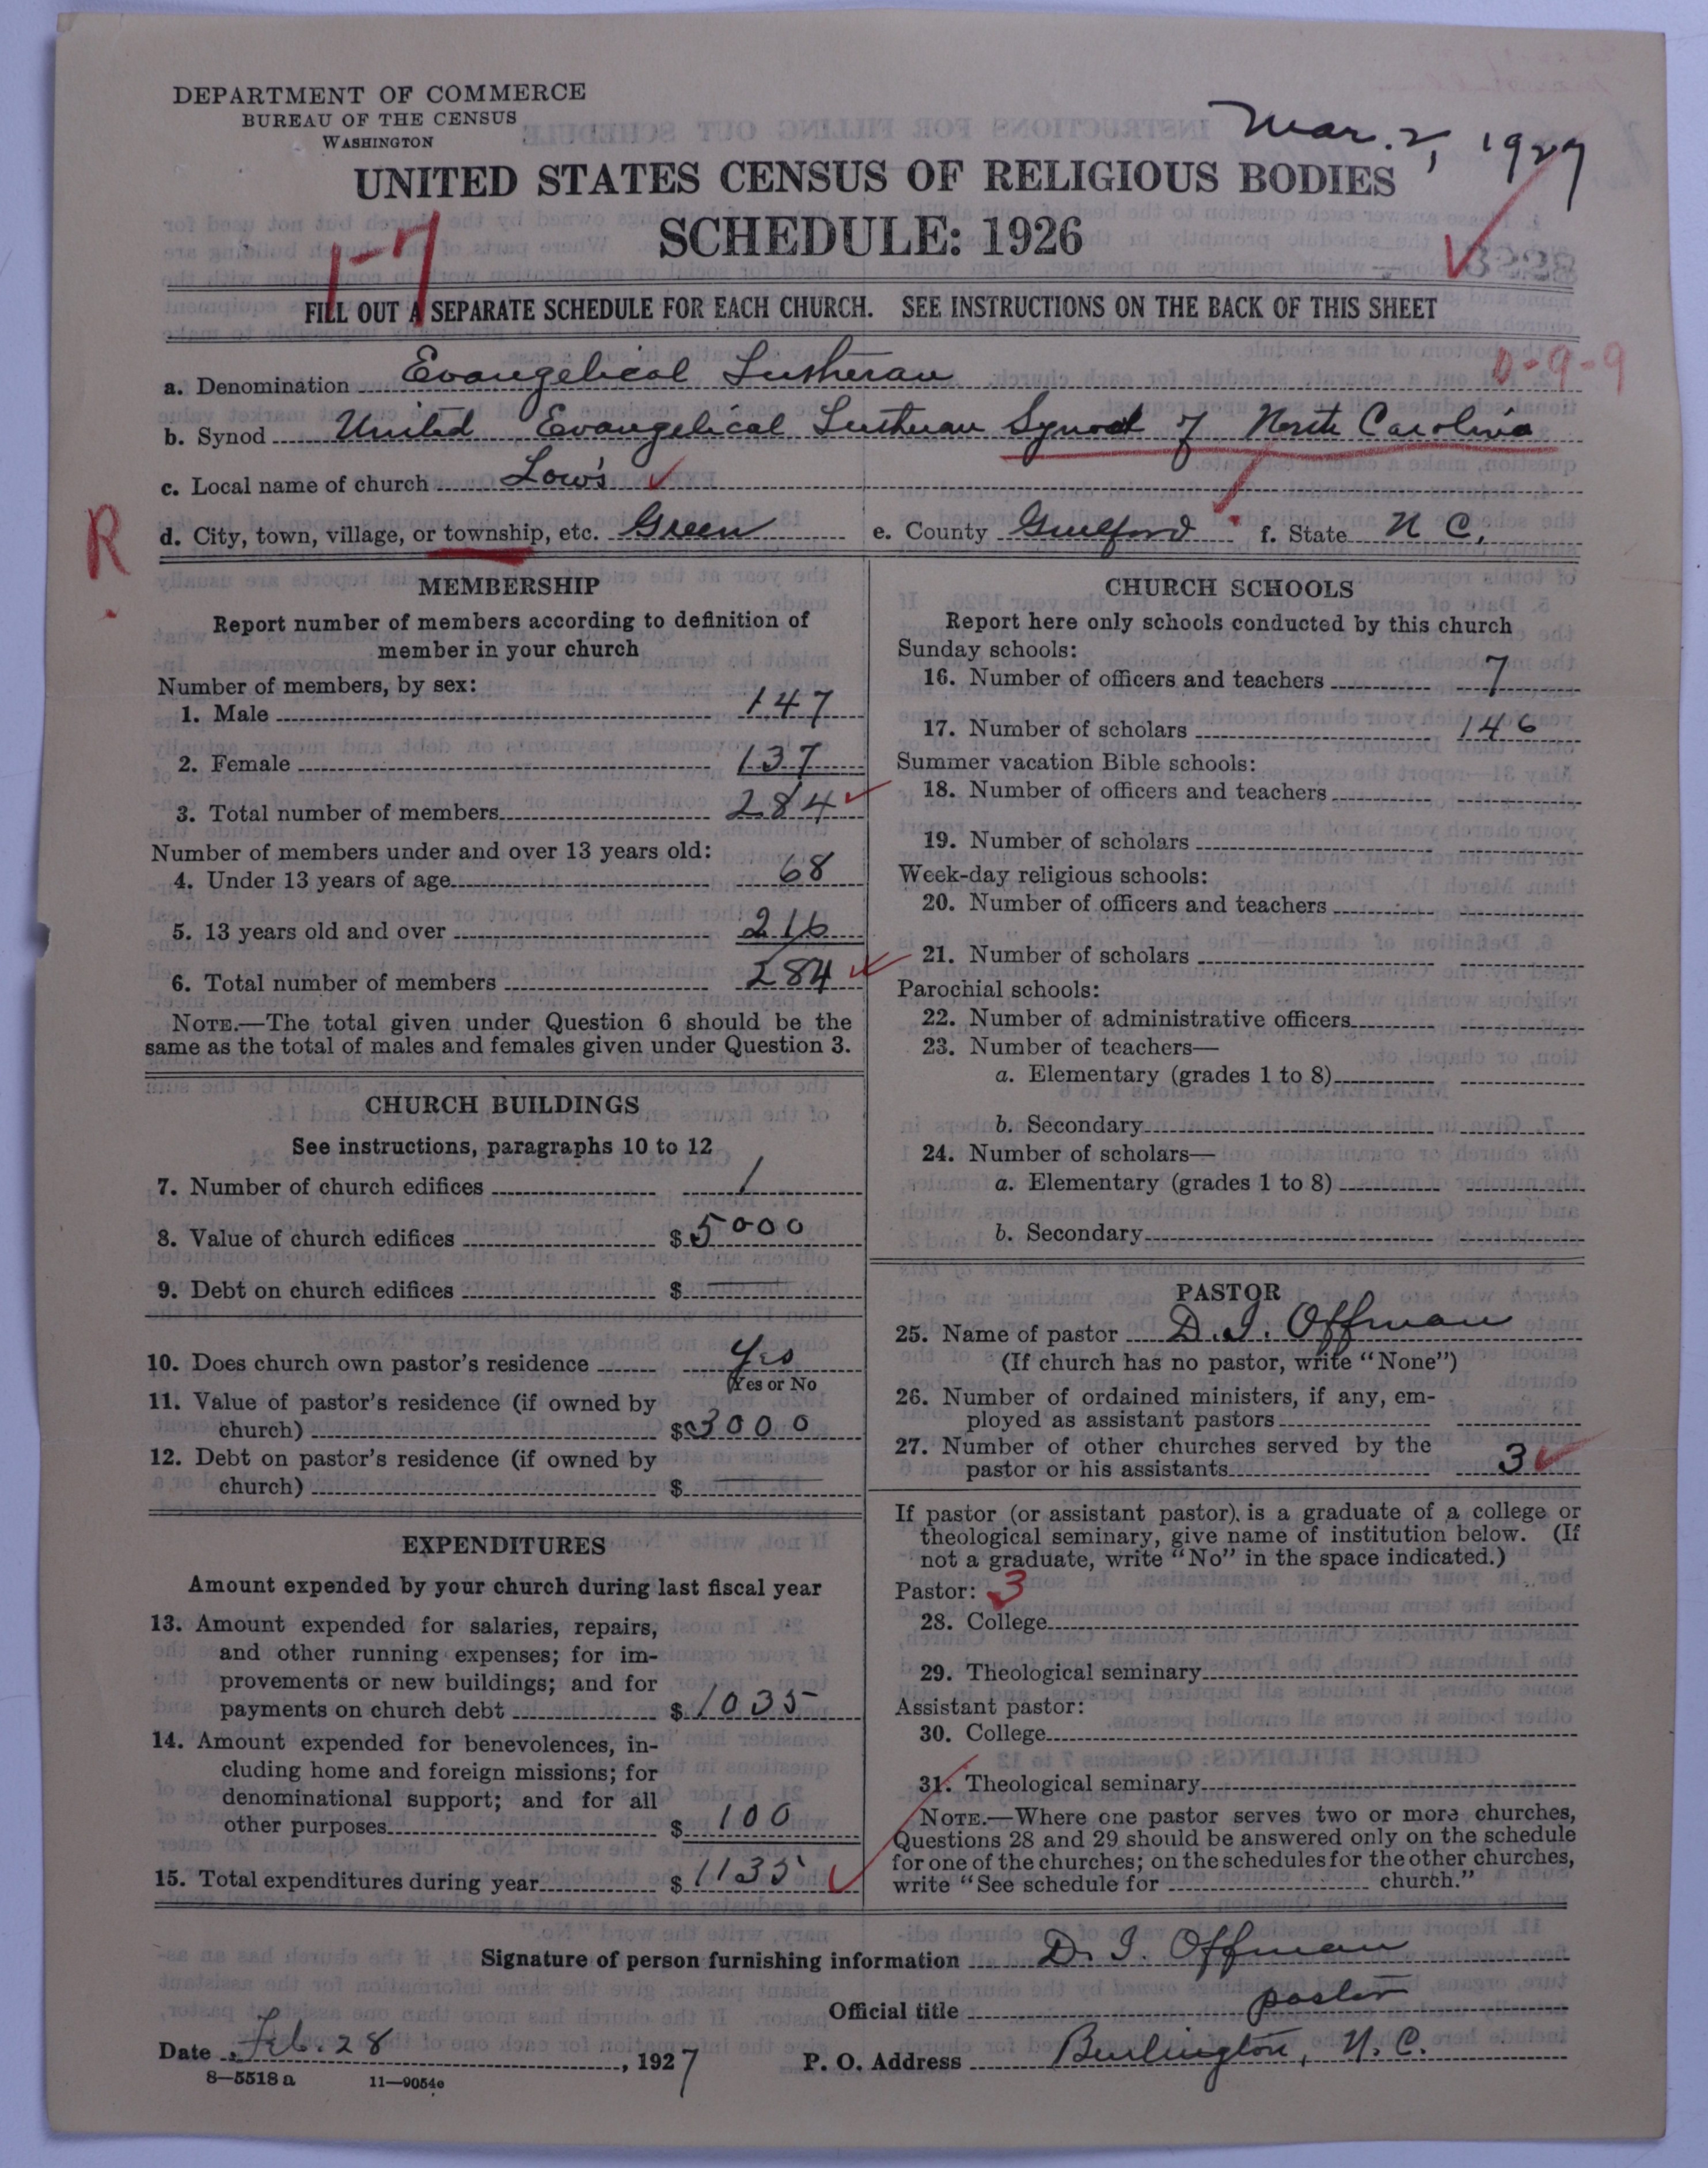 DEPARTMENT OF COMMERCE
BUREAU OF THE CENSUS
WASHINGTON
Mar. 2, 1927
UNITED STATES CENSUS OF RELIGIOUS BODIES
SCHEDULE: 1926
1-7
FILL OUT A SEPARATE SCHEDULE FOR EACH CHURCH. SEE INSTRUCTIONS ON THE BACK OF THIS SHEET
0-9-9
a. Denomination Evangelical Lutheran
b. Synod United Evangelical Lutheran Synod of North Carolina
c. Local name of church Low's
R
d. City, town, village, or township, etc. Green e. County Guilford f. State N C.
MEMBERSHIP
Report number of members according to definition of
member in your church
Number of members, by sex:
1. Male 147
2. Female 137
3. Total number of members 284
Number of members under and over 13 years old:
4. Under 13 years of age 68
5. 13 years old and over 216
6. Total number of members 284
NOTE.—The total given under Question 6 should be the
same as the total of males and females given under Question 3.
CHURCH BUILDINGS
See instructions, paragraphs 10 to 12
7. Number of church edifices 1
8. Value of church edifices $5000
9. Debt on church edifices $ —
10. Does church own pastor's residence Yes
(Yes or No
11. Value of pastor's residence (if owned by
church) $3000
12. Debt on pastor's residence (if owned by
church) $ —
EXPENDITURES
Amount expended by your church during last fiscal year
13. Amount expended for salaries, repairs,
and other running expenses; for im-
provements or new buildings; and for
payments on church debt $1035
14. Amount expended for benevolences, in-
cluding home and foreign missions; for
denominational support; and for all
other purposes $100
15. Total expenditures during year $1135
CHURCH SCHOOLS
Report here only schools conducted by this church
Sunday schools:
16. Number of officers and teachers 7
17. Number of scholars 146
Summer vacation Bible schools:
18. Number of officers and teachers
19. Number of scholars
Week-day religious schools:
20. Number of officers and teachers
21. Number of scholars
Parochial schools:
22. Number of administrative officers
23. Number of teachers—
a. Elementary (grades 1 to 8)
b. Secondary
24. Number of scholars—
a. Elementary (grades 1 to 8)
b. Secondary
PASTOR
25. Name of pastor D. I. Offman
(If church has no pastor, write "None")
26. Number of ordained ministers, if any, em-
ployed as assistant pastors
27. Number of other churches served by the
pastor or his assistants 3
If pastor (or assistant pastor) is a graduate of a college or
theological seminary, give name of institution below. (If
not a graduate, write "No" in the space indicated.)
Pastor: 3
28. College
29. Theological seminary
Assistant pastor:
30. College
31. Theological seminary
NOTE.—Where one pastor serves two or more churches,
Questions 28 and 29 should be answered only on the schedule
for one of the churches; on the schedules for the other churches,
write "See schedule for church."
Signature of person furnishing information D. I. Offman
Official title pastor
Date Feb. 28, 1927 P. O. Address Burlington, N. C.
8—5518 a 11—9054c